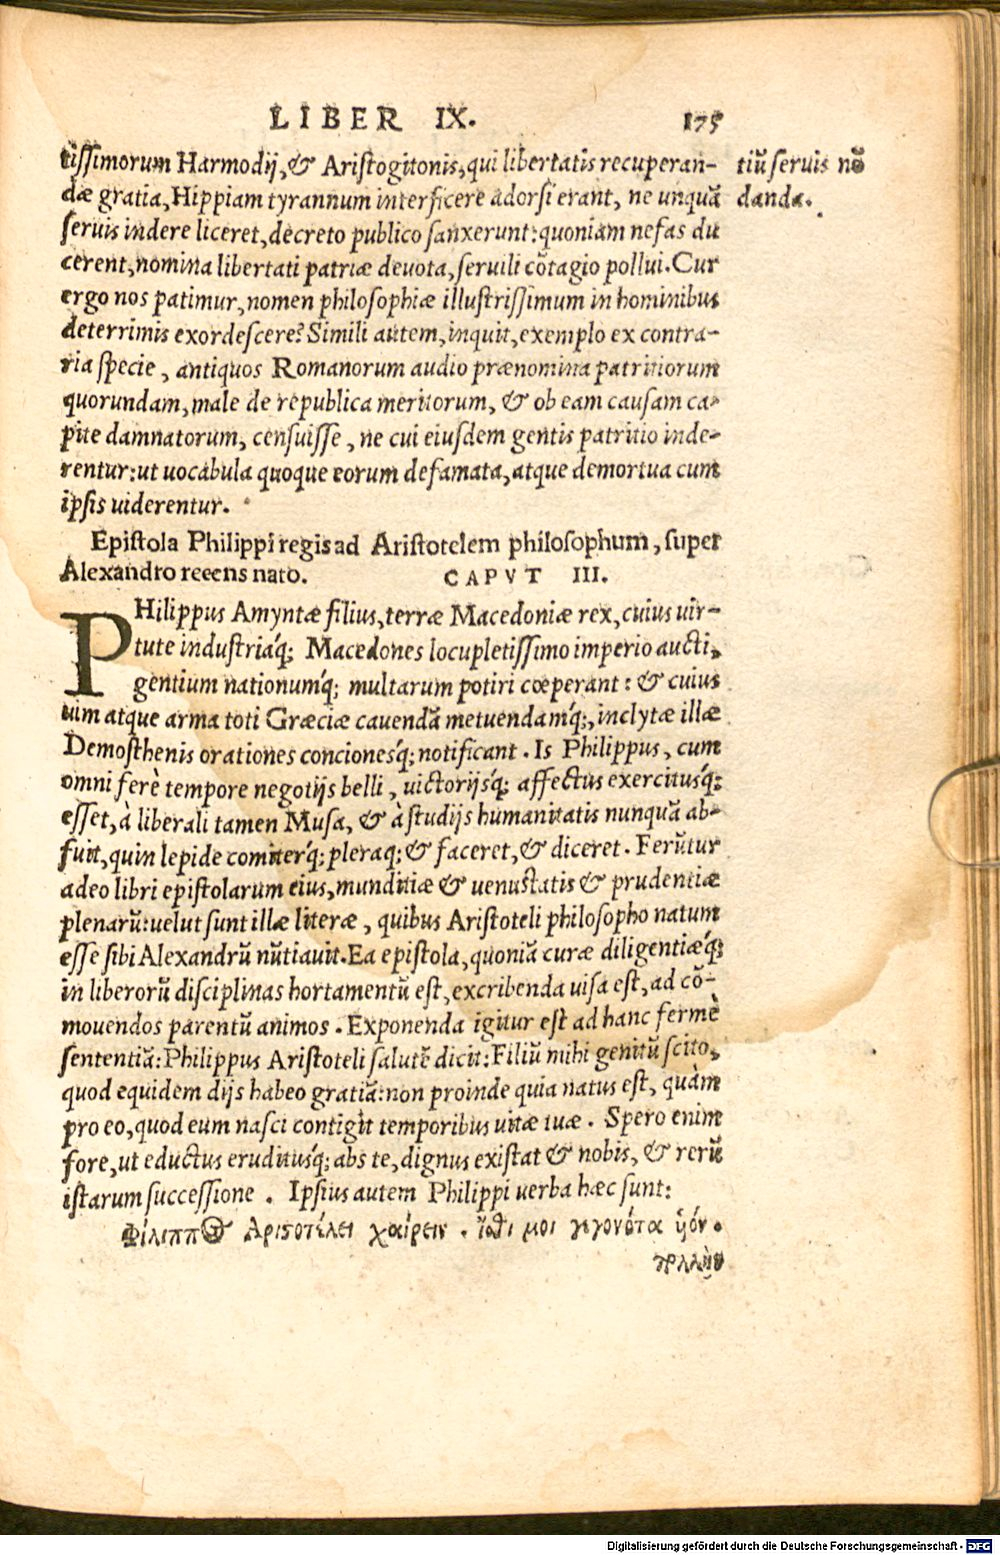 LIBER IX. 175
tissimorum Harmodij, & Aristogitonis, qui libertatis recuperan-
dæ gratia, Hippiam tyrannum interficere adorsi erant, ne unquā
seruis indere liceret, decreto publico sanxerunt: quoniam nefas du
cerent, nomina libertati patriæ deuota, seruili cōtagio pollui. Cur
ergo nos patimur, nomen philosophiæ illustrissimum in hominibus
deterrimis exordescere? Simili autem, inquit, exemplo ex contra-
ria specie, antiquos Romanorum audio prænomina patritiorum
quorundam, male de republica meritorum, & ob eam causam ca-
pite damnatorum, censuisse, ne cui eiusdem gentis patritio inde-
rentur: ut uocabula quoque eorum defamata, atque demortua cum
ipsis uiderentur.
tiū seruis nō
danda.
Epistola Philippi regis ad Aristotelem philosophum, super
Alexandro recens nato. CAPVT III.
PHilippus Amyntæ filius, terræ Macedoniæ rex, cuius uir-
tute industriaq́; Macedones locupletissimo imperio aucti,
gentium nationumq́; multarum potiri cœperant: & cuius
uim atque arma toti Græciæ cauendā metuendamq́;, inclytæ illæ
Demosthenis orationes concionesq́; notificant. Is Philippus, cum
omni ferè tempore negotijs belli, uictorijsq́; affectus exercitusq́;
esset, à liberali tamen Musa, & à studijs humanitatis nunquā ab-
fuit, quin lepide comiterq́; pleraq; & faceret, & diceret. Ferūtur
adeo libri epistolarum eius, munditiæ & uenustatis & prudentiæ
plenarū: uelut sunt illæ literæ, quibus Aristoteli philosopho natum
esse sibi Alexandrū nūtiauit. Ea epistola, quoniā curæ diligentiæq́;
in liberorū disciplinas hortamentū est, excribenda uisa est, ad cō-
mouendos parentū animos. Exponenda igitur est ad hanc fermè
sententiā: Philippus Aristoteli salutē dicit: Filiū mihi genitū scito,
quod equidem dijs habeo gratiā: non proinde quia natus est, quàm
pro eo, quod eum nasci contigit temporibus uitæ tuæ. Spero enim
fore, ut eductus eruditusq́; abs te, dignus existat & nobis, & rerū
istarum successione. Ipsius autem Philippi uerba hæc sunt:
Φίλιππος Ἀριστοτέλει χαίρειν. ἴσθι μοι γεγονότα ὑόν.
πολλὴν
Digitalisierung gefördert durch die Deutsche Forschungsgemeinschaft - DFG